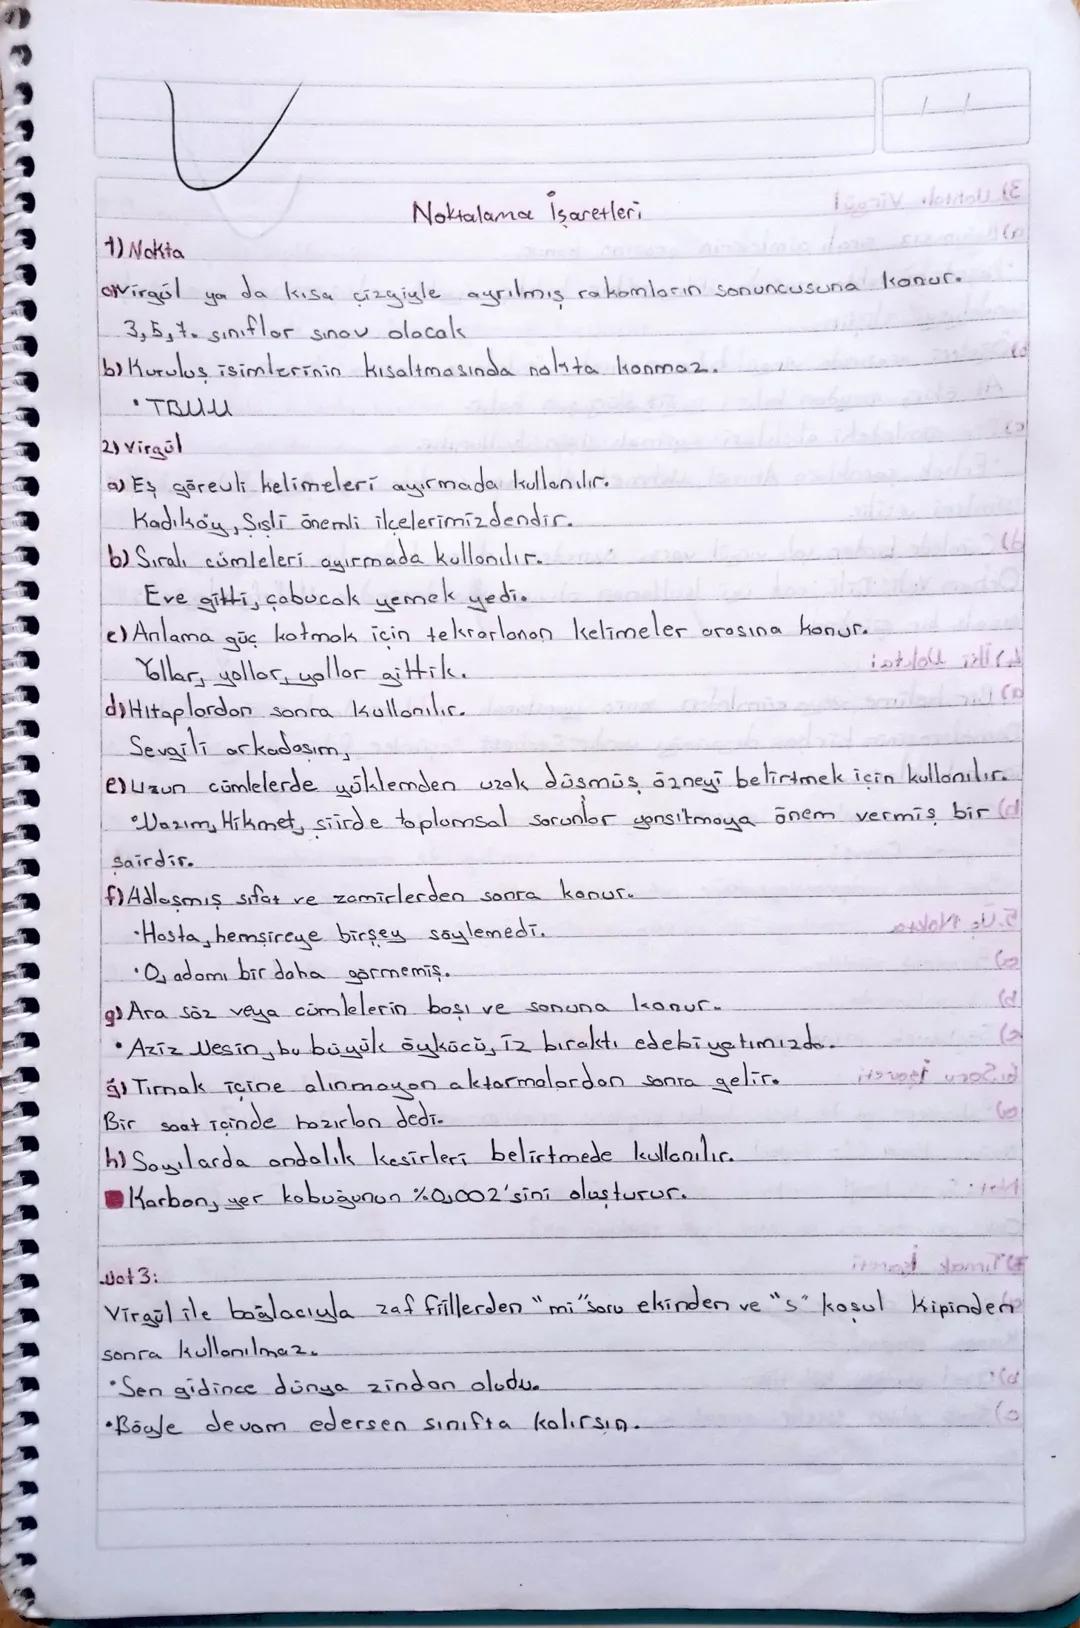 Noktalama İşaretleri
1) Nokta
a) Virgül ya da kısa çizgiyle ayrılmış rakamların sonuncusuna konur.
3,5,7. sınıflar sınav olacak
b) Kuruluş isimlerinin kısaltmasında nokta konmaz.
• TBMM
2) Virgül
a) Eş görevli kelimeleri ayırmada kullanılır.
Kadıköy, Şişli önemli ilçelerimizdendir.
b) Sıralı cümleleri ayırmada kullanılır.
Eve gitti, çabucak yemek yedi.
c) Anlama güç katmak için tekrarlanan kelimeler arasına konur.
Yollar, yollar, yollar gittik.
d) Hitaplardan sonra kullanılır.
Sevgili arkadaşım,
e) Uzun cümlelerde yüklemden uzak düşmüş özneyi belirtmek için kullanılır.
• Nazım, Hikmet, şiirde toplumsal sorunlar yansıtmaya önem vermiş bir
şairdir.
f) Adlaşmış sıfat ve zamirlerden sonra konur.
• Hasta, hemşireye birşey söylemedi.
• O, adamı bir daha görmemiş.
g) Ara söz veya cümlelerin başı ve sonuna konur.
• Aziz Nesin, bu büyük öykücü, iz bıraktı edebiyatımızda.
ğ) Tırnak içine alınmayan aktarmalardan sonra gelir.
Bir saat içinde hazırlan dedi.
h) Sayılarda ondalık kesirleri belirtmede kullanılır.
Karbon, yer kabuğunun %0,002'sini oluşturur.
Not 3:
Virgül ile bağlacıyla zaf fiillerden "mi" soru ekinden ve "s" koşul kipinden
sonra kullanılmaz.
• Sen gidince dünya zindan oludu.
• Böyle devam edersen sınıfta kalırsın.